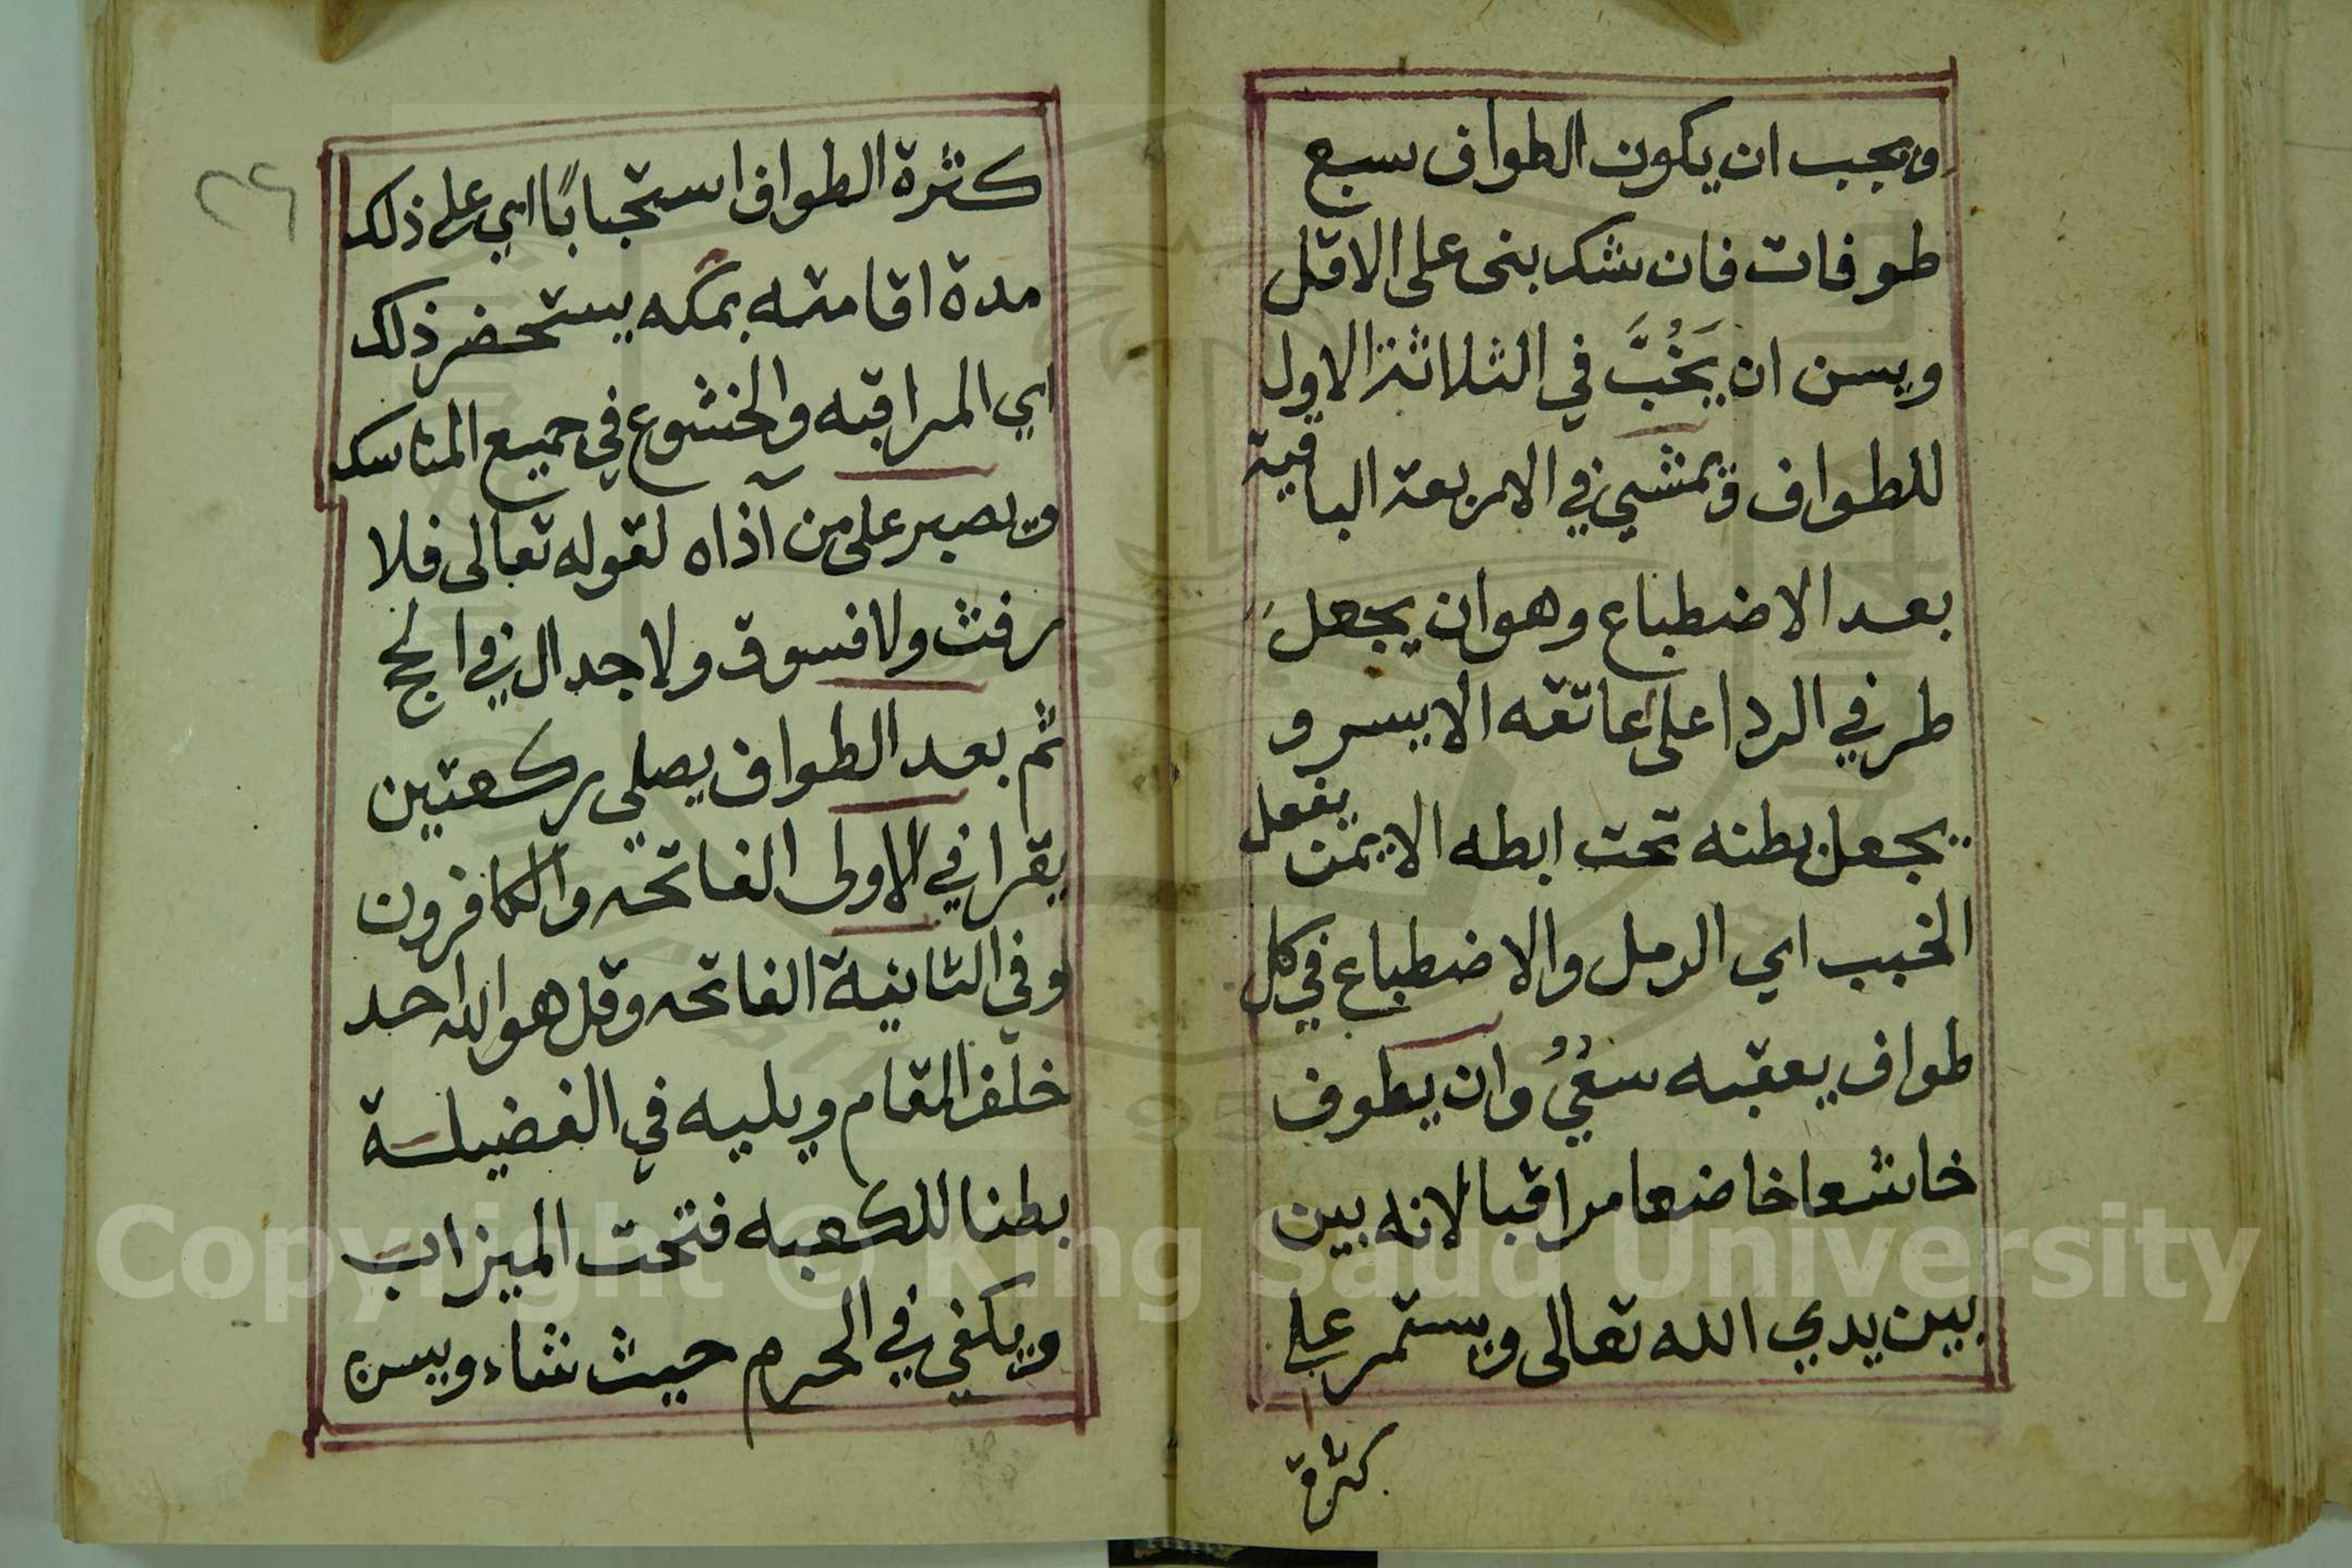 ويجب ان يكون الطواف سبع
طوفات فان شك بنى على الاقل
ويسن ان يَخُبَّ في الثلاثة الاول
للطواف ويمشي في الاربعة الباقية
بعد الاضطباع وهو ان يجعل
طرفي الردا على عاتقه الايسر و
يجعل بطنه تحت ابطه الايمن يفعل
الخبب اي الرمل والاضطباع في كل
طواف يعقبه سعيٌ وان يطوف
خاشعا خاضعا مراقبا لانه بين
بين يدي الله تعالى ويستمر على
كثرة
٢٦
كثرة الطواف استحبابًا اي على ذلك
مدة اقامته بمكه يستحضر ذلك
اي المراقبه والخشوع في جميع المناسك
ويصبر على من آذاه لقوله تعالى فلا
رفث ولا فسوق ولا جدال في الحج
ثم بعد الطواف يصلي ركعتين
يقرا في الاولى الفاتحه والكافرون
وفي الثانية الفاتحه وقل هو الله احد
خلف المقام ويليه في الفضيلة
بطنا للكعبه فتحت الميزاب
ويكفي في الحرم حيث شاء ويسن
Copyright © King Saud University